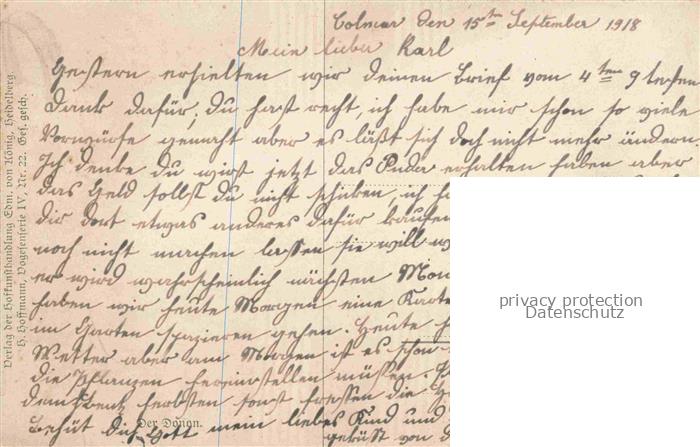 Colmar den 15ten September 1918
Mein lieber Karl
Gestern erhielten wir deinen Brief vom 4ten 9 besten
Dank dafür, du hast recht, ich habe mir schon so viele
Vorwürfe gemacht aber es läßt sich doch nicht mehr ändern.
Ich denke du wirst jetzt das erhalten haben aber
das Geld sollst du nicht schicken, ich
dir dort etwas anderes dafür kaufen
noch nicht machen lassen sie will
er wird wahrscheinlich nächsten
haben wir heute Morgen eine Karte
im Garten spazieren gehen. Heute
Wetter aber am Morgen ist es schon
die Pflanzen hereinstellen müssen.
herbsten sonst fressen die
Behüt dich Gott mein liebes Kind und
gegrüßt von
Der Donon.
Verlag der Hofkunsthandlung Edm. von König, Heidelberg.
H. Hoffmann, Vogesenserie IV, Nr. 22. Ges. gesch.
privacy protection
Datenschutz